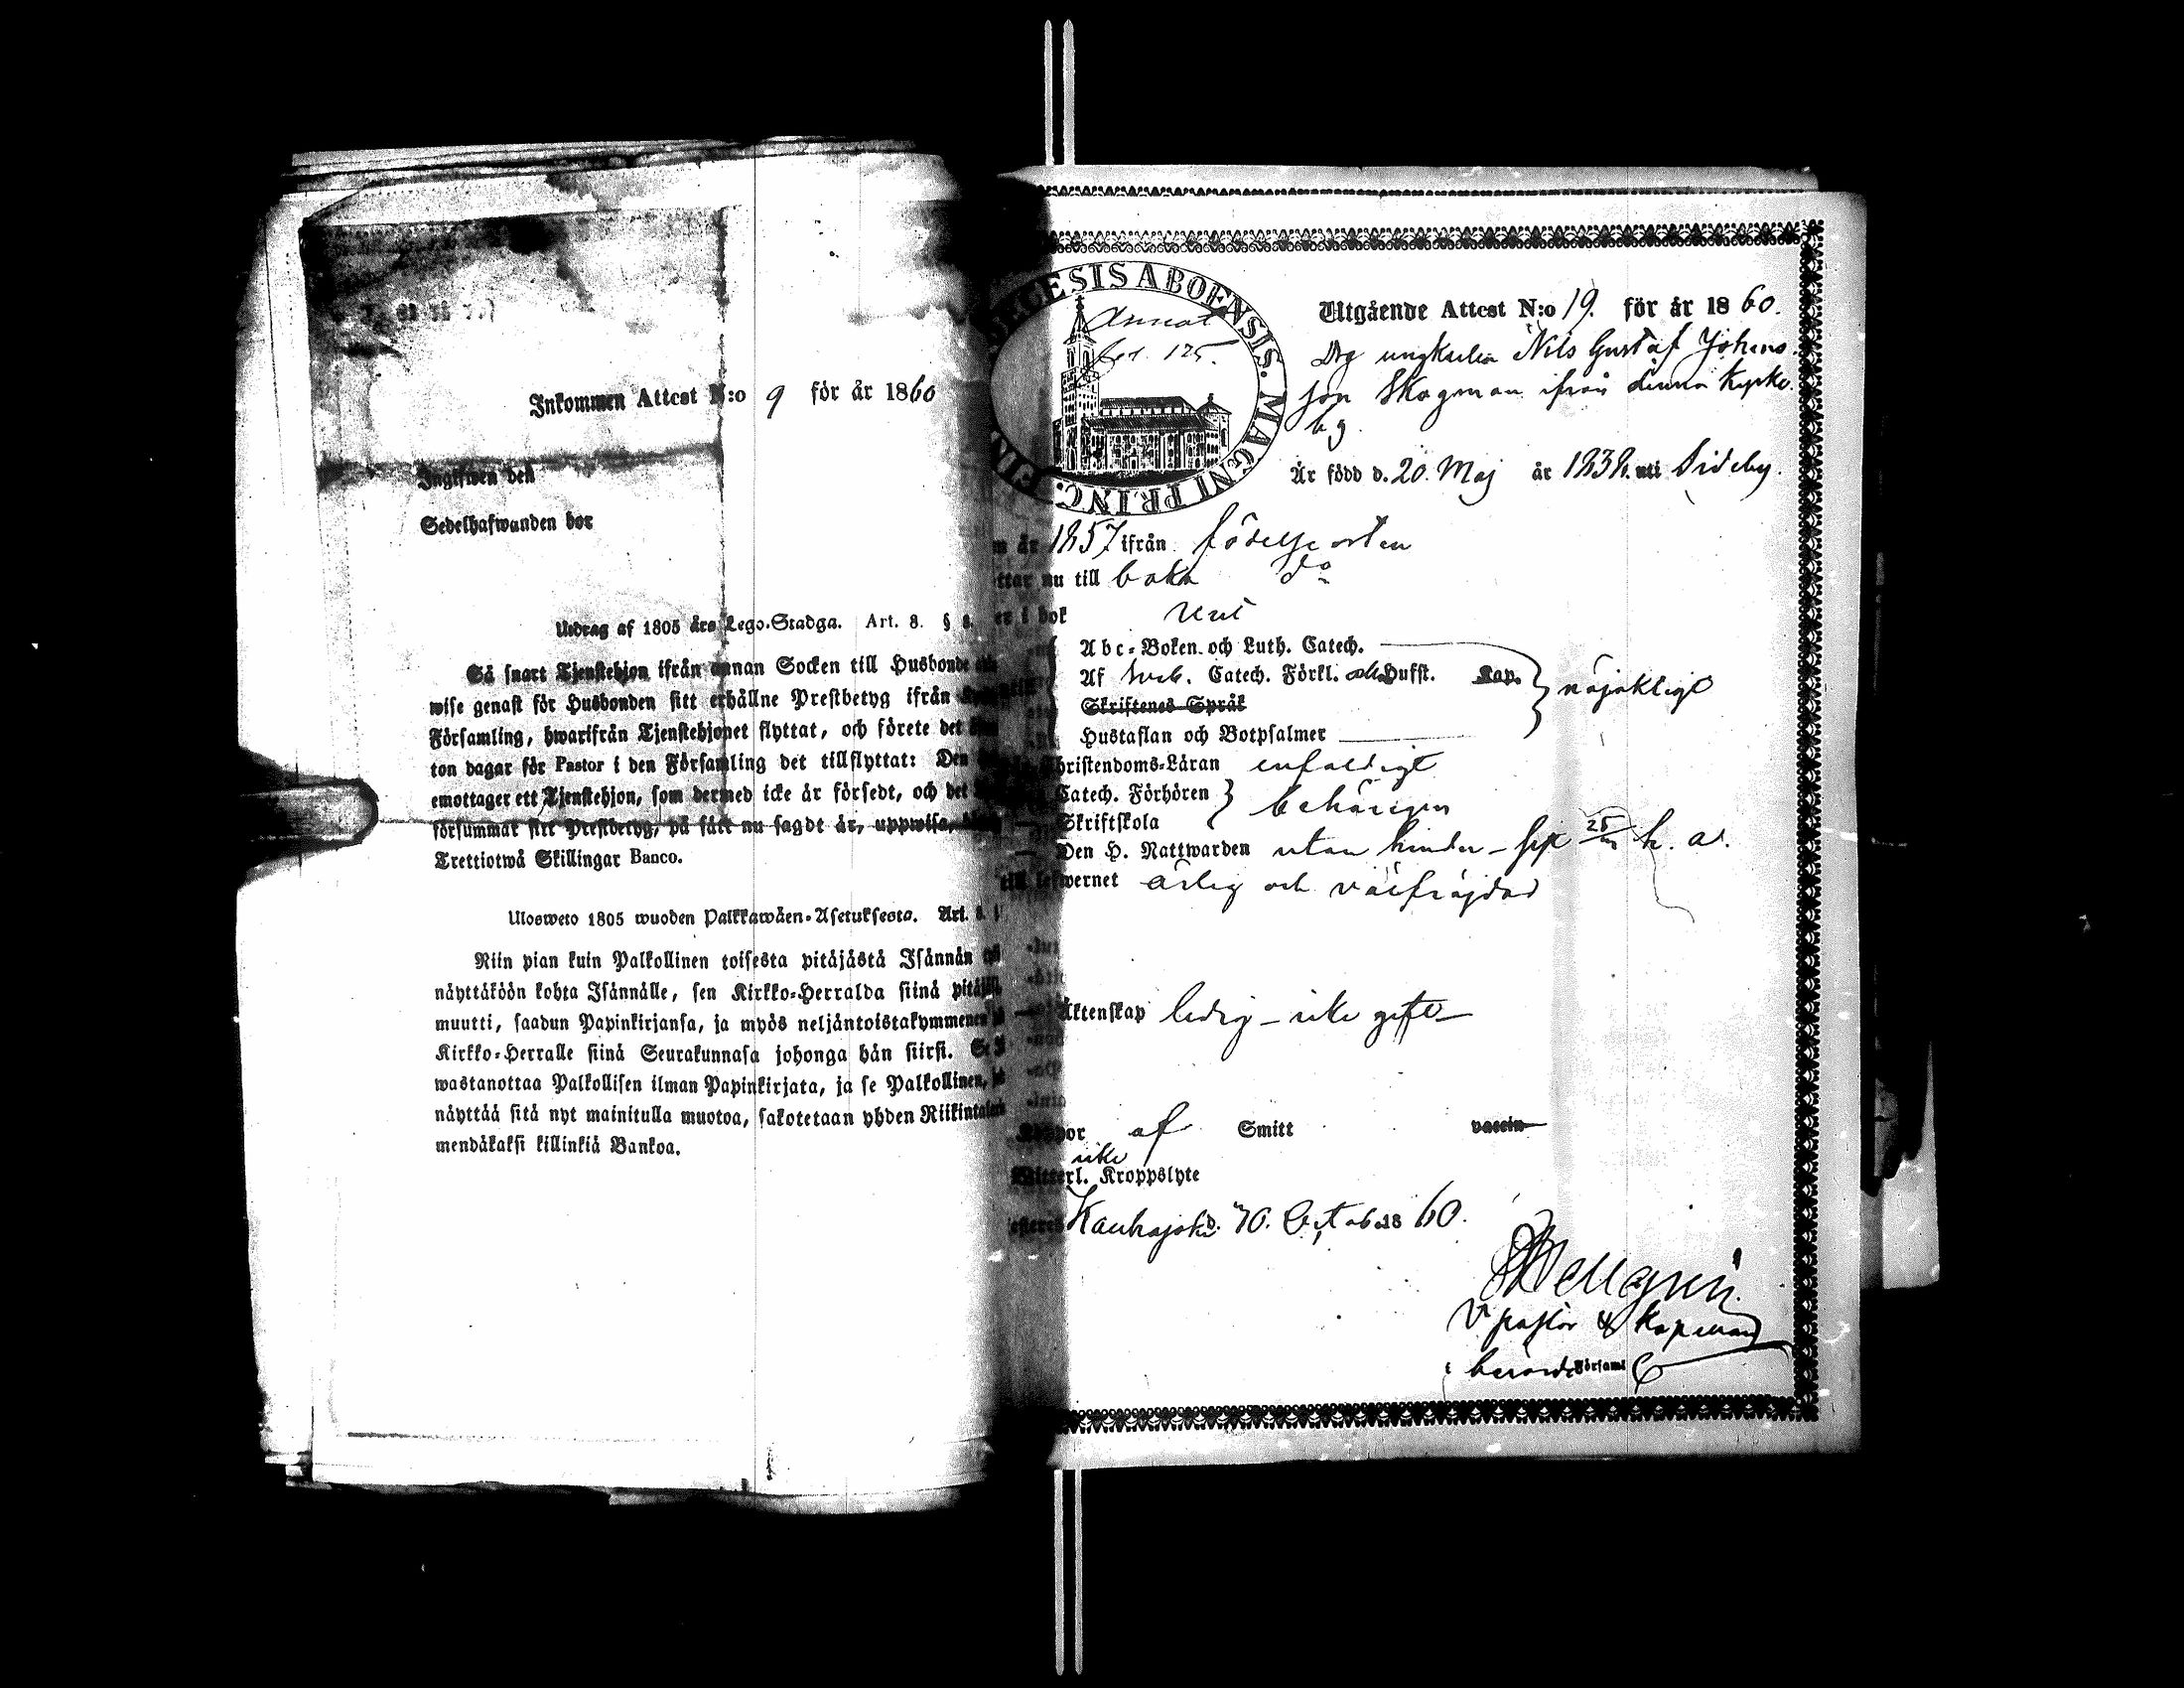 Inkommen Attest N:o 9 för år 1860
Ingifwen den
Sedelhafwanden bor
Utdrag af 1805 års Lego-Stadga. Art. 8. §
Så snart Tjenstehjon ifrån annan Socken till Husbonde
wise genast för Husbonden sitt erhållne Prestbetyg ifrån
Församling, hwarifrån Tjenstehjonet flyttat, och förete det
ton dagar för Pastor i den Församling det tillflyttat: Den
emottager ett Tjenstehjon, som dermed icke är försedt, och det
försummar sitt Prestbetyg, på sätt nu sagdt är, uppwisa,
Trettiotwå Skillingar Banco.
Ulosweto 1805 wuoden Palkkawäen-Asetuksesta. Art. 8.
Niin pian kuin Palkollinen toisesta pitäjästä Isännän
näyttäköön kohta Isännälle, sen Kirkko-Herralda siinä
muutti, saadun Papinkirjansa, ja myös neljäntoistakymmenen
Kirkko-Herralle siinä Seurakunnasa johonga hän siirsi.
wastanottaa Palkollisen ilman Papinkirjata, ja se Palkollinen,
näyttää sitä nyt mainitulla muotoa, sakotetaan yhden Riikintalarin
mendäkaksi killinkiä Bankoa.
CESIS ABOENSIS. MAGNI PRINC. FIN
Annot
Utgående Attest N:o 19. för år 1860.
Dg ungkarlen Nils Gustaf Johans
son Skogman ifrån denna kyrko
by.
Är född d. 20. Maj år 1838. uti Sideby.
år 1857 ifrån födelseorten
nu till baka do
i bok
Abc-Boken och Luth. Catech.
Af Sveb. Catech. Förkl. och Husst. Kap. } nöjaktigt
Skriftenes Språk
Hustaflan och Botpsalmer
Christendoms-Läran enfaldigt
Catech. Förhören } behörigen
Skriftskola
Den H. Nattwarden utan hinder
till lefwernet ärlig och välfrägdad
Äktenskap ledig – icke gift
af Smitt vaccin
icke
Kroppslyte
Kauhajoki d. 10. October 1860.
V pastor & Kapellan
i berörde Församl